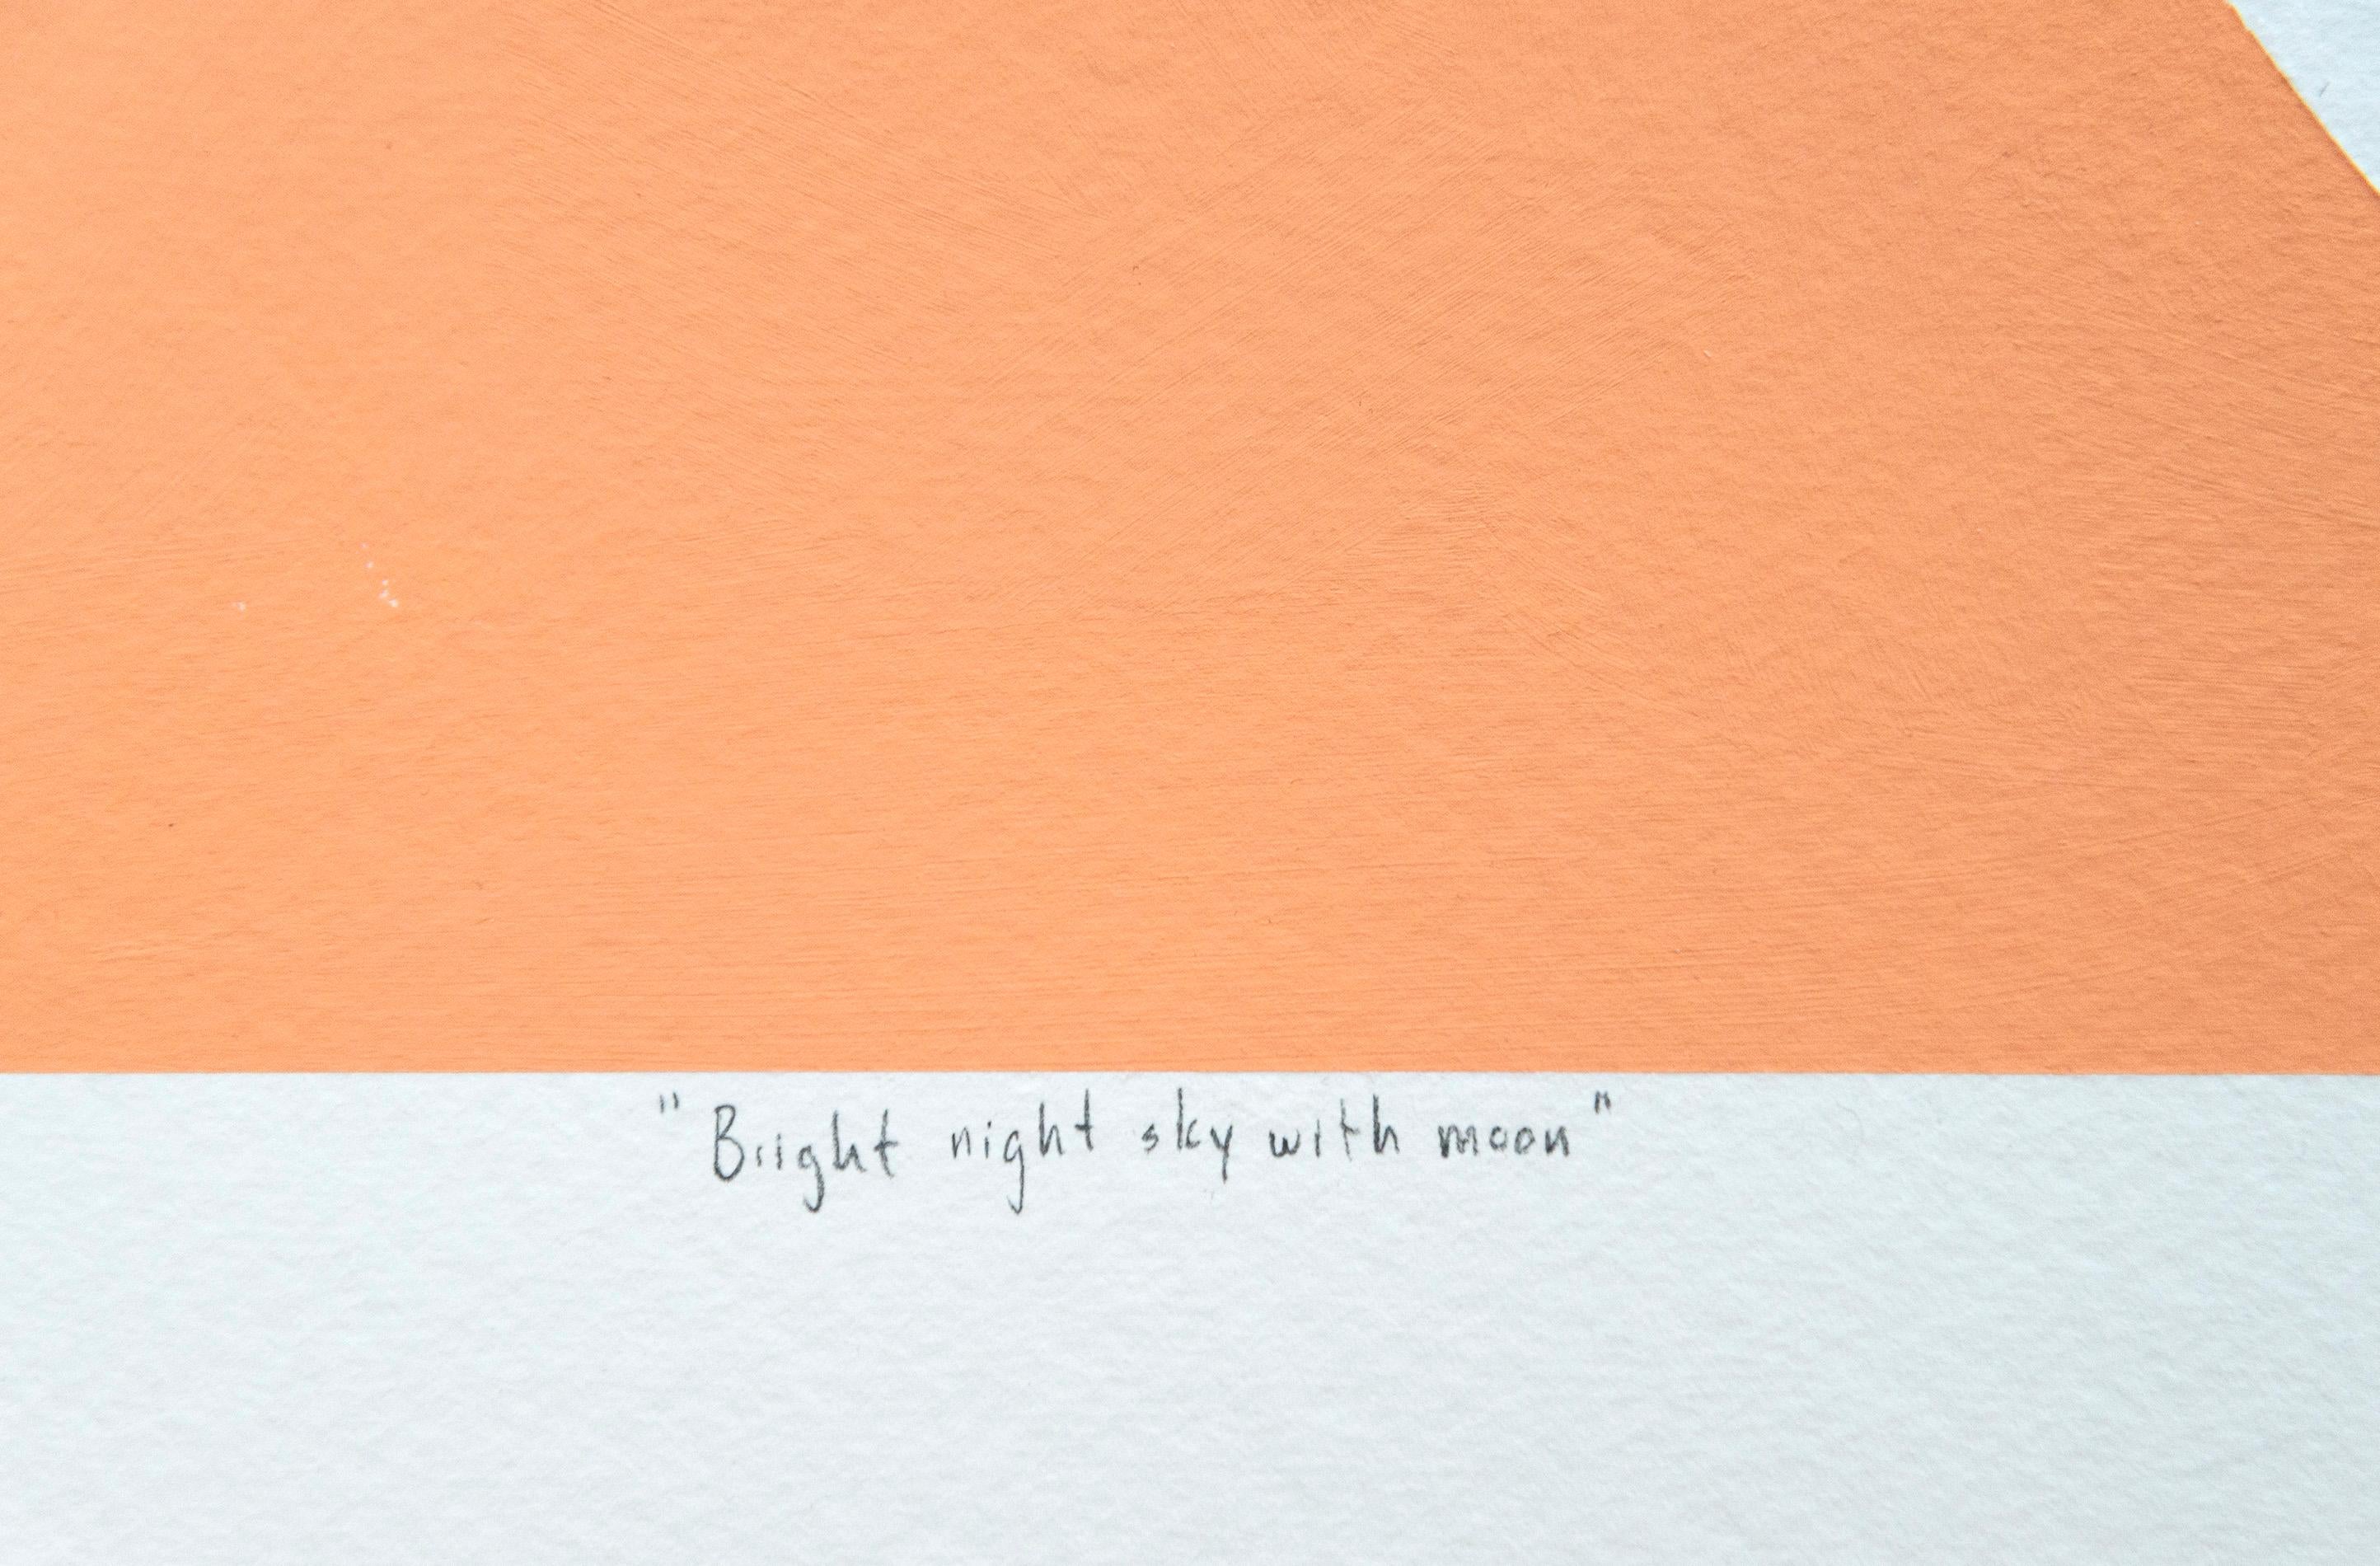 "Bright night sky with moon"